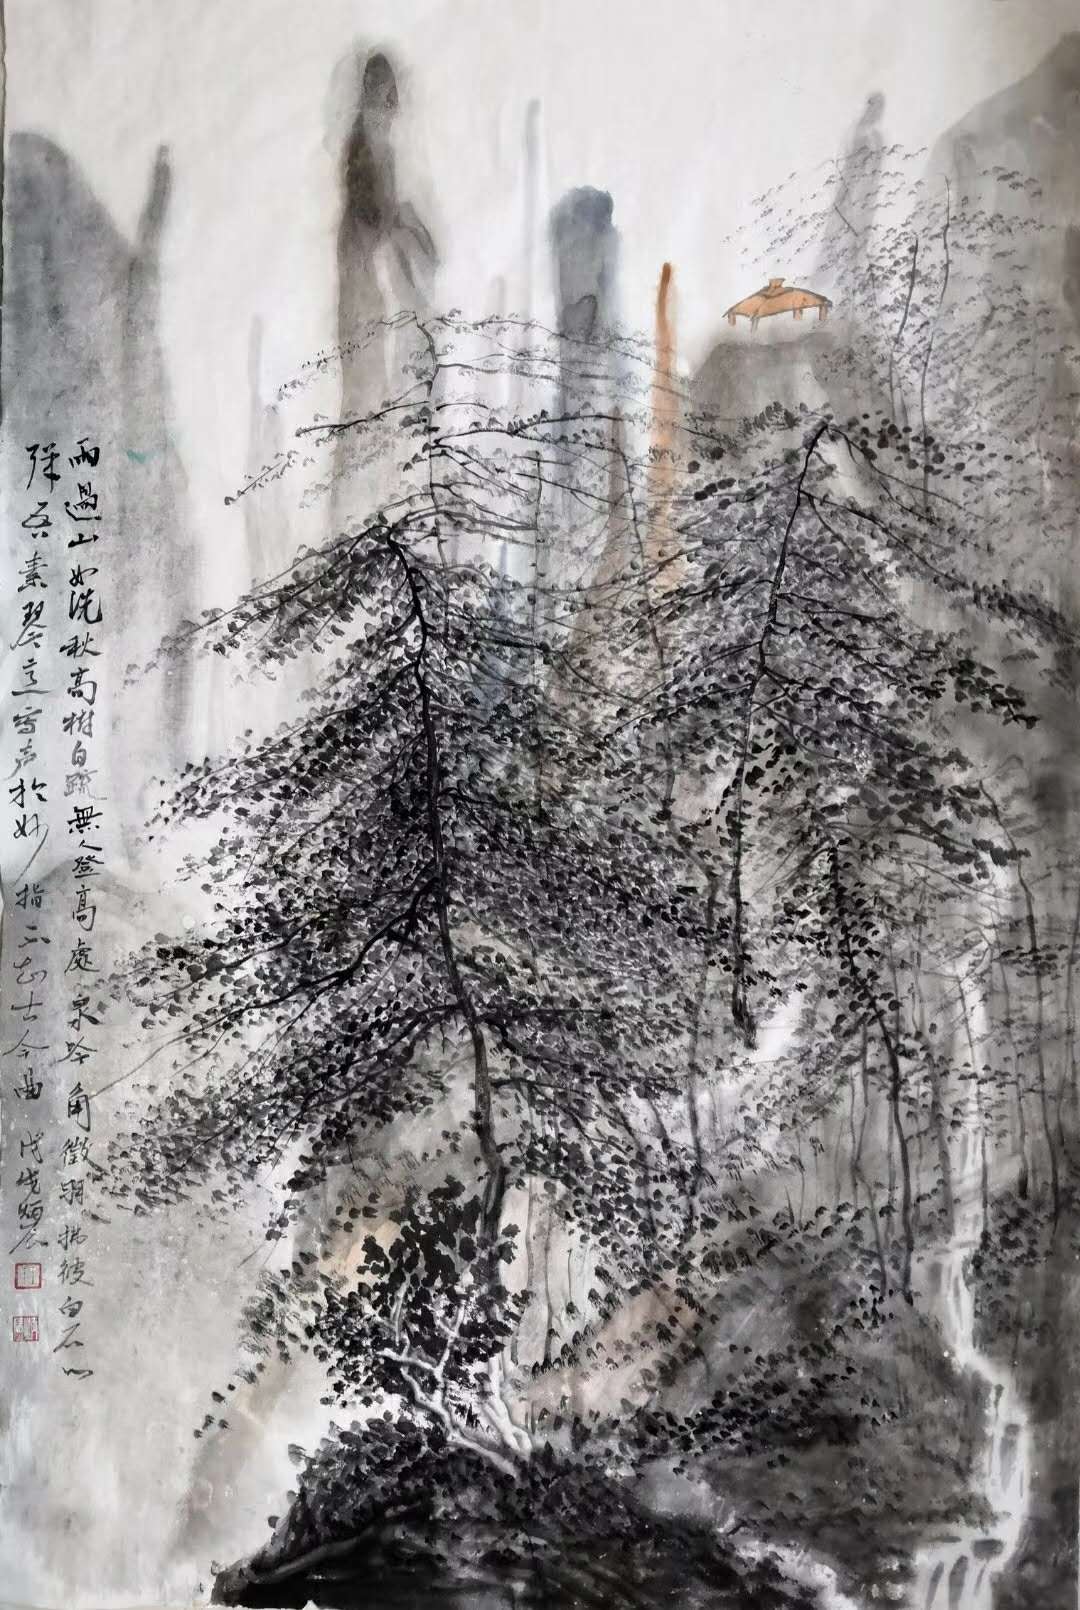 雨過山如洗秋高樹自疏無人登高處泉吟角徵羽拂彼白石
弹吾素琴意寄声於妙指不知古今曲 戊戌